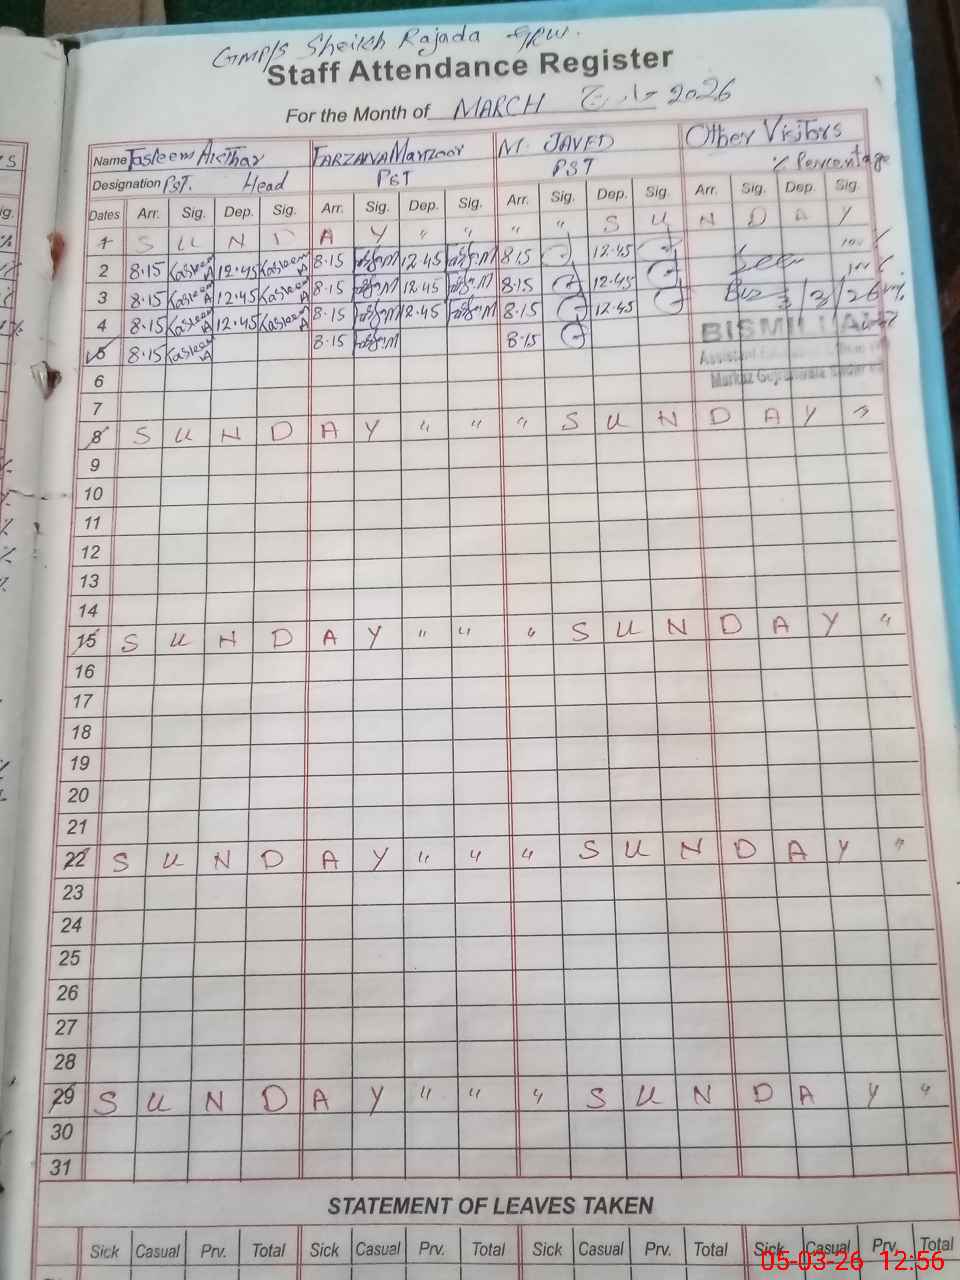 GMP/S Sheikh Rajada GRW.
Staff Attendance Register
For the Month of MARCH 2026
Name Tasleem Akthar FARZANA Manzoor M. JAVED Other Visitors
Designation PST. Head PST PST % Percentage
Dates Arr. Sig. Dep. Sig. Arr. Sig. Dep. Sig. Arr. Sig. Dep. Sig. Arr. Sig. Dep. Sig.
1 S U N D A Y " " " " S U N D A Y
2 8.15 Tasleem A 12.45 Tasleem A 8.15 12.45 8.15 12.45
3 8.15 Tasleem A 12.45 Tasleem A 8.15 12.45 8.15 12.45
4 8.15 Tasleem A 12.45 Tasleem A 8.15 12.45 8.15 12.45
BISMILLAH
5 8.15 Tasleem A 8.15 8.15
6
7
8 S U N D A Y " " " S U N D A Y "
9
10
11
12
13
14
15 S U N D A Y " " " S U N D A Y "
16
17
18
19
20
21
22 S U N D A Y " " " S U N D A Y "
23
24
25
26
27
28
29 S U N D A Y " " " S U N D A Y "
30
31
STATEMENT OF LEAVES TAKEN
Sick Casual Prv. Total Sick Casual Prv. Total Sick Casual Prv. Total Sick Casual Prv. Total
05-03-26 12:56